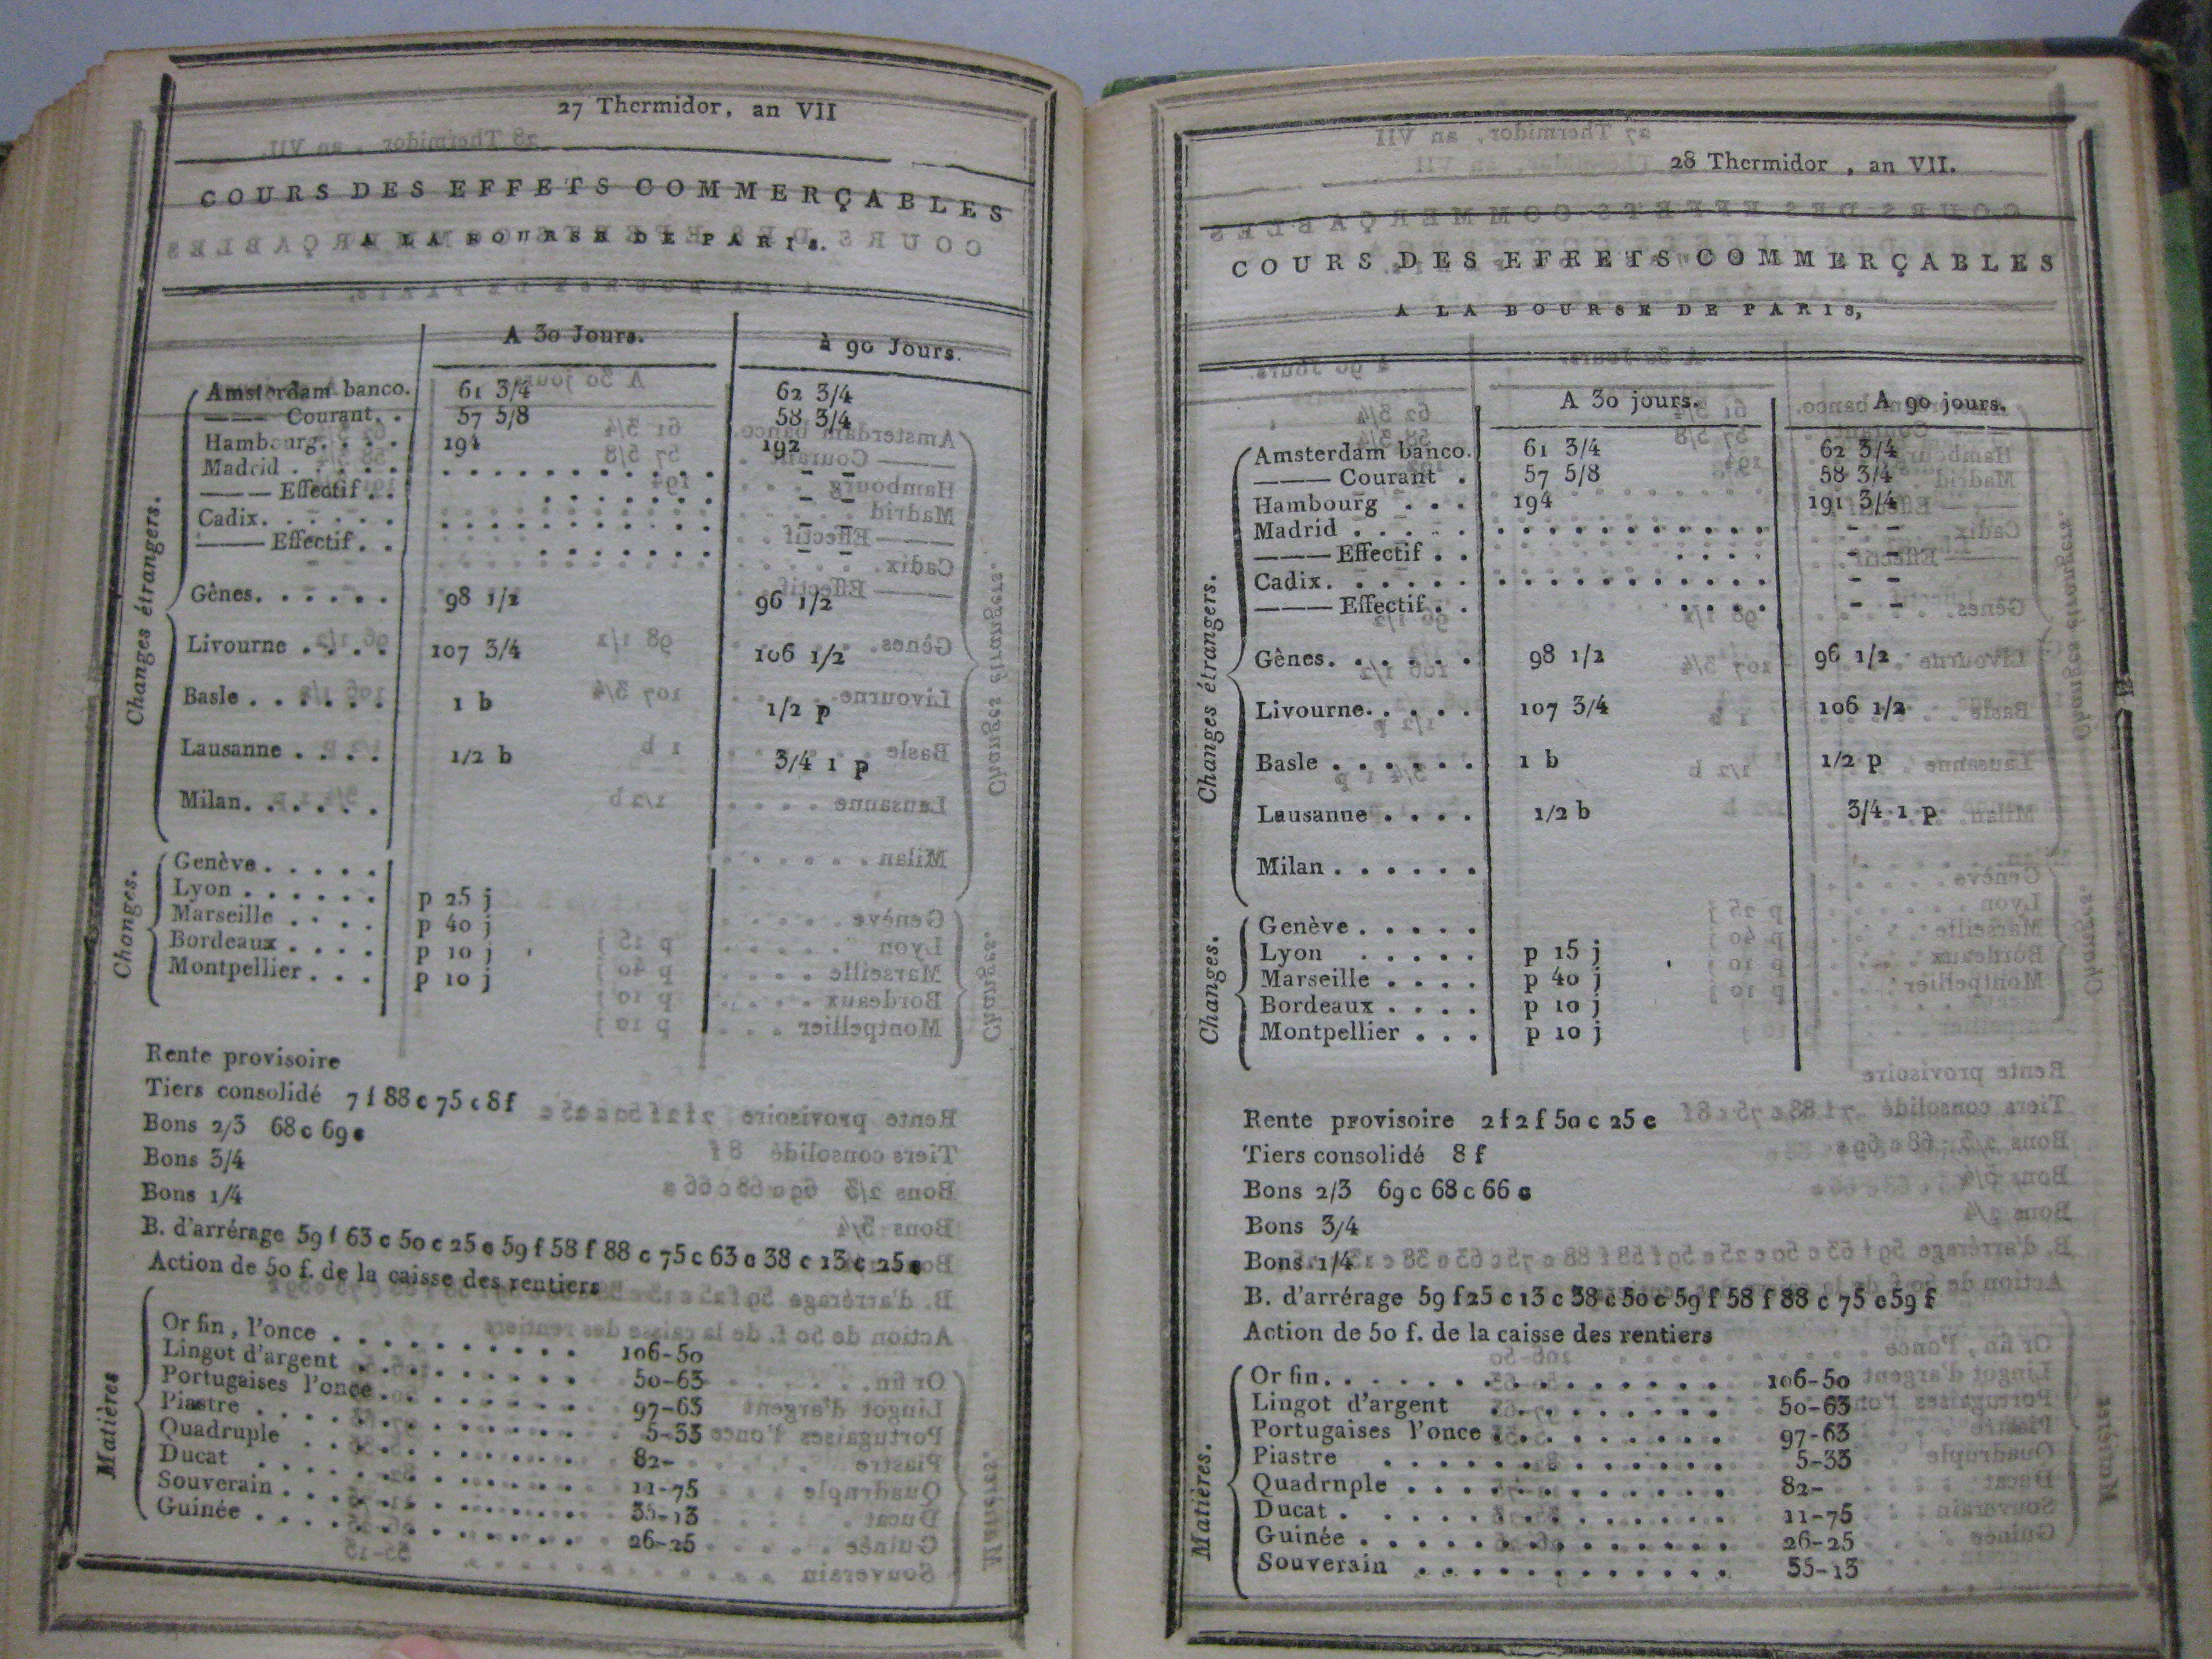 27 Thermidor, an VII
COURS DES EFFETS COMMERÇABLES
A LA BOURSE DE PARIS.
A 30 Jours. à 90 Jours.
Changes étrangers.
Amsterdam banco. 61 3/4 62 3/4
——— Courant. . 57 5/8 58 3/4
Hambourg. . . . 194 192
Madrid . . . . . . . . . . . . . . . — —
——— Effectif . . . . . . . . . — —
Cadix. . . . . . . . . . . . . . . . — —
——— Effectif. . . . . . . . . — —
Gênes. . . . . . 98 1/2 96 1/2
Livourne . . . . 107 3/4 106 1/2
Basle . . . . . . 1 b 1/2 p
Lausanne . . . . 1/2 b 3/4 1 p
Milan. . . . . .
Changes.
Genève. . . . .
Lyon . . . . . . p 25 j
Marseille . . . . p 40 j
Bordeaux . . . . p 10 j
Montpellier . . . p 10 j
Rente provisoire
Tiers consolidé 7 f 88 c 75 c 8 f
Bons 2/3 68 c 69 c
Bons 3/4
Bons 1/4
B. d'arrérage 59 f 63 c 50 c 25 c 59 f 58 f 88 c 75 c 63 c 38 c 13 c 25 c
Action de 50 f. de la caisse des rentiers
Matières
Or fin, l'once . . . . . . . . . . 106-50
Lingot d'argent . . . . . . . . . 50-63
Portugaises l'once . . . . . . . . 97-63
Piastre . . . . . . . . . . . . . 5-33
Quadruple . . . . . . . . . . . 82-
Ducat . . . . . . . . . . . . . 11-75
Souverain . . . . . . . . . . . . 35-13
Guinée . . . . . . . . . . . . . 26-25
28 Thermidor , an VII.
COURS DES EFFETS COMMERÇABLES
A LA BOURSE DE PARIS,
A 30 jours. A 90 jours.
Changes étrangers.
Amsterdam banco. 61 3/4 62 3/4
——— Courant . 57 5/8 58 3/4
Hambourg . . . 194 191 3/4
Madrid . . . . . . . . . . . . . . . . — —
——— Effectif . . . . . . — —
Cadix. . . . . . . . . . . . . . . . . — —
——— Effectif . . . . . . — —
Gênes. . . . . . 98 1/2 96 1/2
Livourne. . . . . 107 3/4 106 1/2
Basle . . . . . . 1 b 1/2 p
Lausanne . . . . 1/2 b 3/4 1 p
Milan . . . . . .
Changes.
Genève . . . . .
Lyon . . . . . p 15 j
Marseille . . . . p 40 j
Bordeaux . . . . p 10 j
Montpellier . . . p 10 j
Rente provisoire 2 f 2 f 50 c 25 c
Tiers consolidé 8 f
Bons 2/3 69 c 68 c 66 c
Bons 3/4
Bons 1/4
B. d'arrérage 59 f 25 c 13 c 38 c 50 c 59 f 58 f 88 c 75 c 59 f
Action de 50 f. de la caisse des rentiers
Matières.
Or fin. . . . . . . . . . . . . . 106-50
Lingot d'argent . . . . . . . . 50-63
Portugaises l'once . . . . . . . . 97-63
Piastre . . . . . . . . . . . . 5-33
Quadrnple . . . . . . . . . . . 82-
Ducat . . . . . . . . . . . . . 11-75
Guinée . . . . . . . . . . . . . 26-25
Souverain . . . . . . . . . . . 35-13